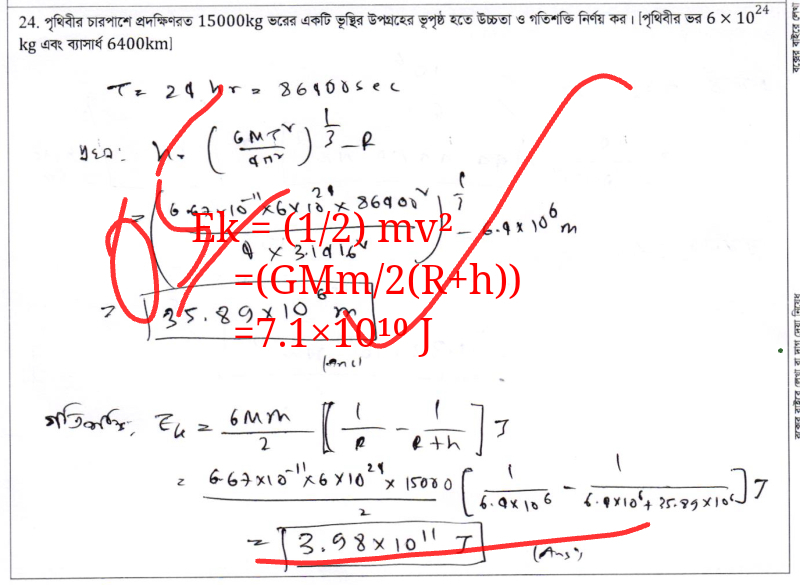 24. পৃথিবীর চারপাশে প্রদক্ষিণরত 15000kg ভরের একটি ভূস্থির উপগ্রহের ভূপৃষ্ঠ হতে উচ্চতা ও গতিশক্তি নির্ণয় কর। [পৃথিবীর ভর 6 × 10²⁴
kg এবং ব্যাসার্ধ 6400km]
T = 24 hr = 86400 sec
h = (GMT²/4π²)^(1/3) - R
= (6.67×10⁻¹¹×6×10²⁴×86400²/4×3.1416²)^(1/3) - 6.4×10⁶ m
Ek = (1/2) mv²
=(GMm/2(R+h))
= 35.89×10⁶ m
=7.1×10¹⁰ J
(Ans)
গতিশক্তি, Ek = GMm/2 [1/R - 1/R+h] J
= 6.67×10⁻¹¹×6×10²⁴×15000/2 [1/6.4×10⁶ - 1/6.4×10⁶+35.89×10⁶] J
= 3.98×10¹¹ J
(Ans)